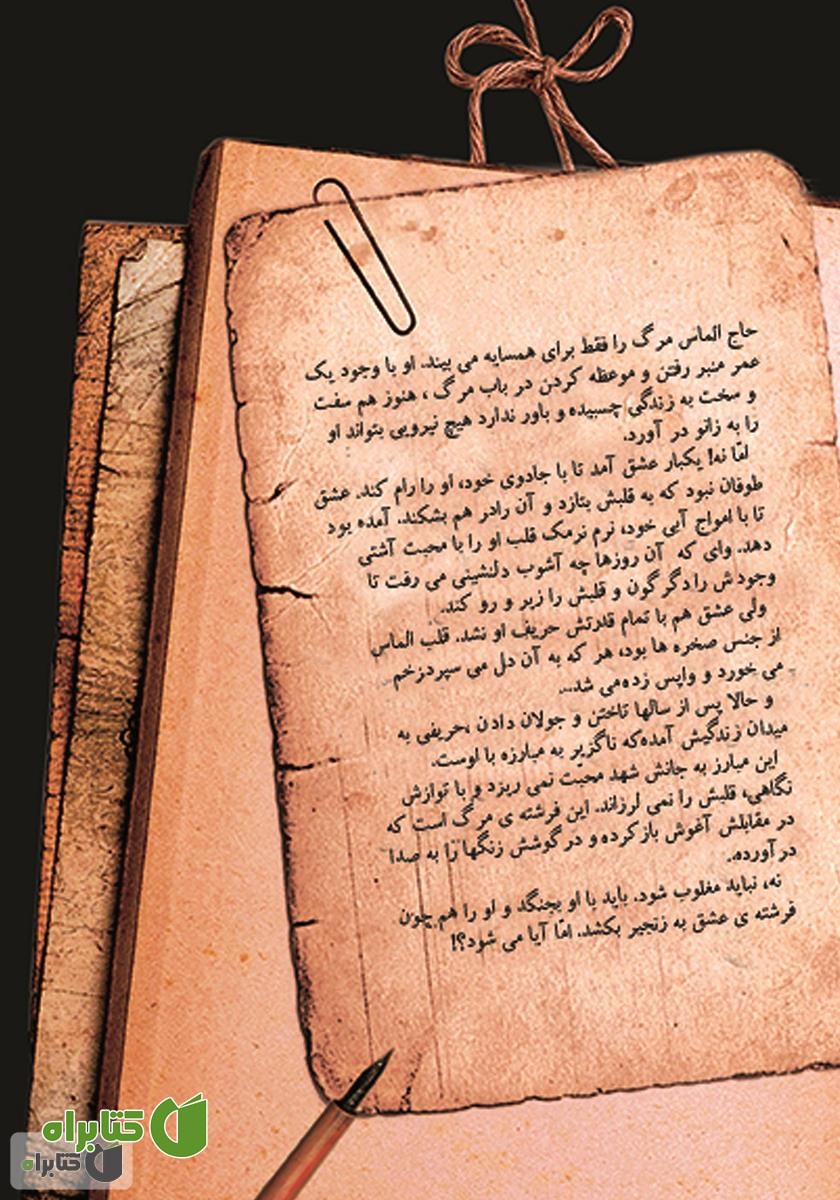 حاج الماس مرگ را فقط برای همسایه می بیند. او با وجود یک
عمر منبر رفتن و موعظه کردن در باب مرگ ، هنوز هم سفت
و سخت به زندگی چسبیده و باور ندارد هیچ نیرویی بتواند او
را به زانو در آورد.
امّا نه! یکبار عشق آمد تا با جادوی خود، او را رام کند. عشق
طوفان نبود که به قلبش بتازد و آن رادر هم بشکند. آمده بود
تا با امواج آبی خود، نرم نرمک قلب او را با محبت آشتی
دهد. وای که آن روزها چه آشوب دلنشینی می رفت تا
وجودش را دگرگون و قلبش را زیر و رو کند.
ولی عشق هم با تمام قدرتش حریف او نشد. قلب الماس
از جنس صخره ها بود، هر که به آن دل می سپردزخم
می خورد و واپس زده می شد...
و حالا پس از سالها تاختن و جولان دادن ،حریفی به
میدان زندگیش آمده که ناگزیر به مبارزه با اوست.
این مبارز به جانش شهد محبت نمی ریزد و با نوازش
نگاهی، قلبش را نمی لرزاند. این فرشته ی مرگ است که
در مقابلش آغوش بازکرده و در گوشش زنگها را به صدا
در آورده.
نه، نباید مغلوب شود. باید با او بجنگد و او را هم چون
فرشته ی عشق به زنجیر بکشد. امّا آیا می شود؟!
کتابراه
کتابراه